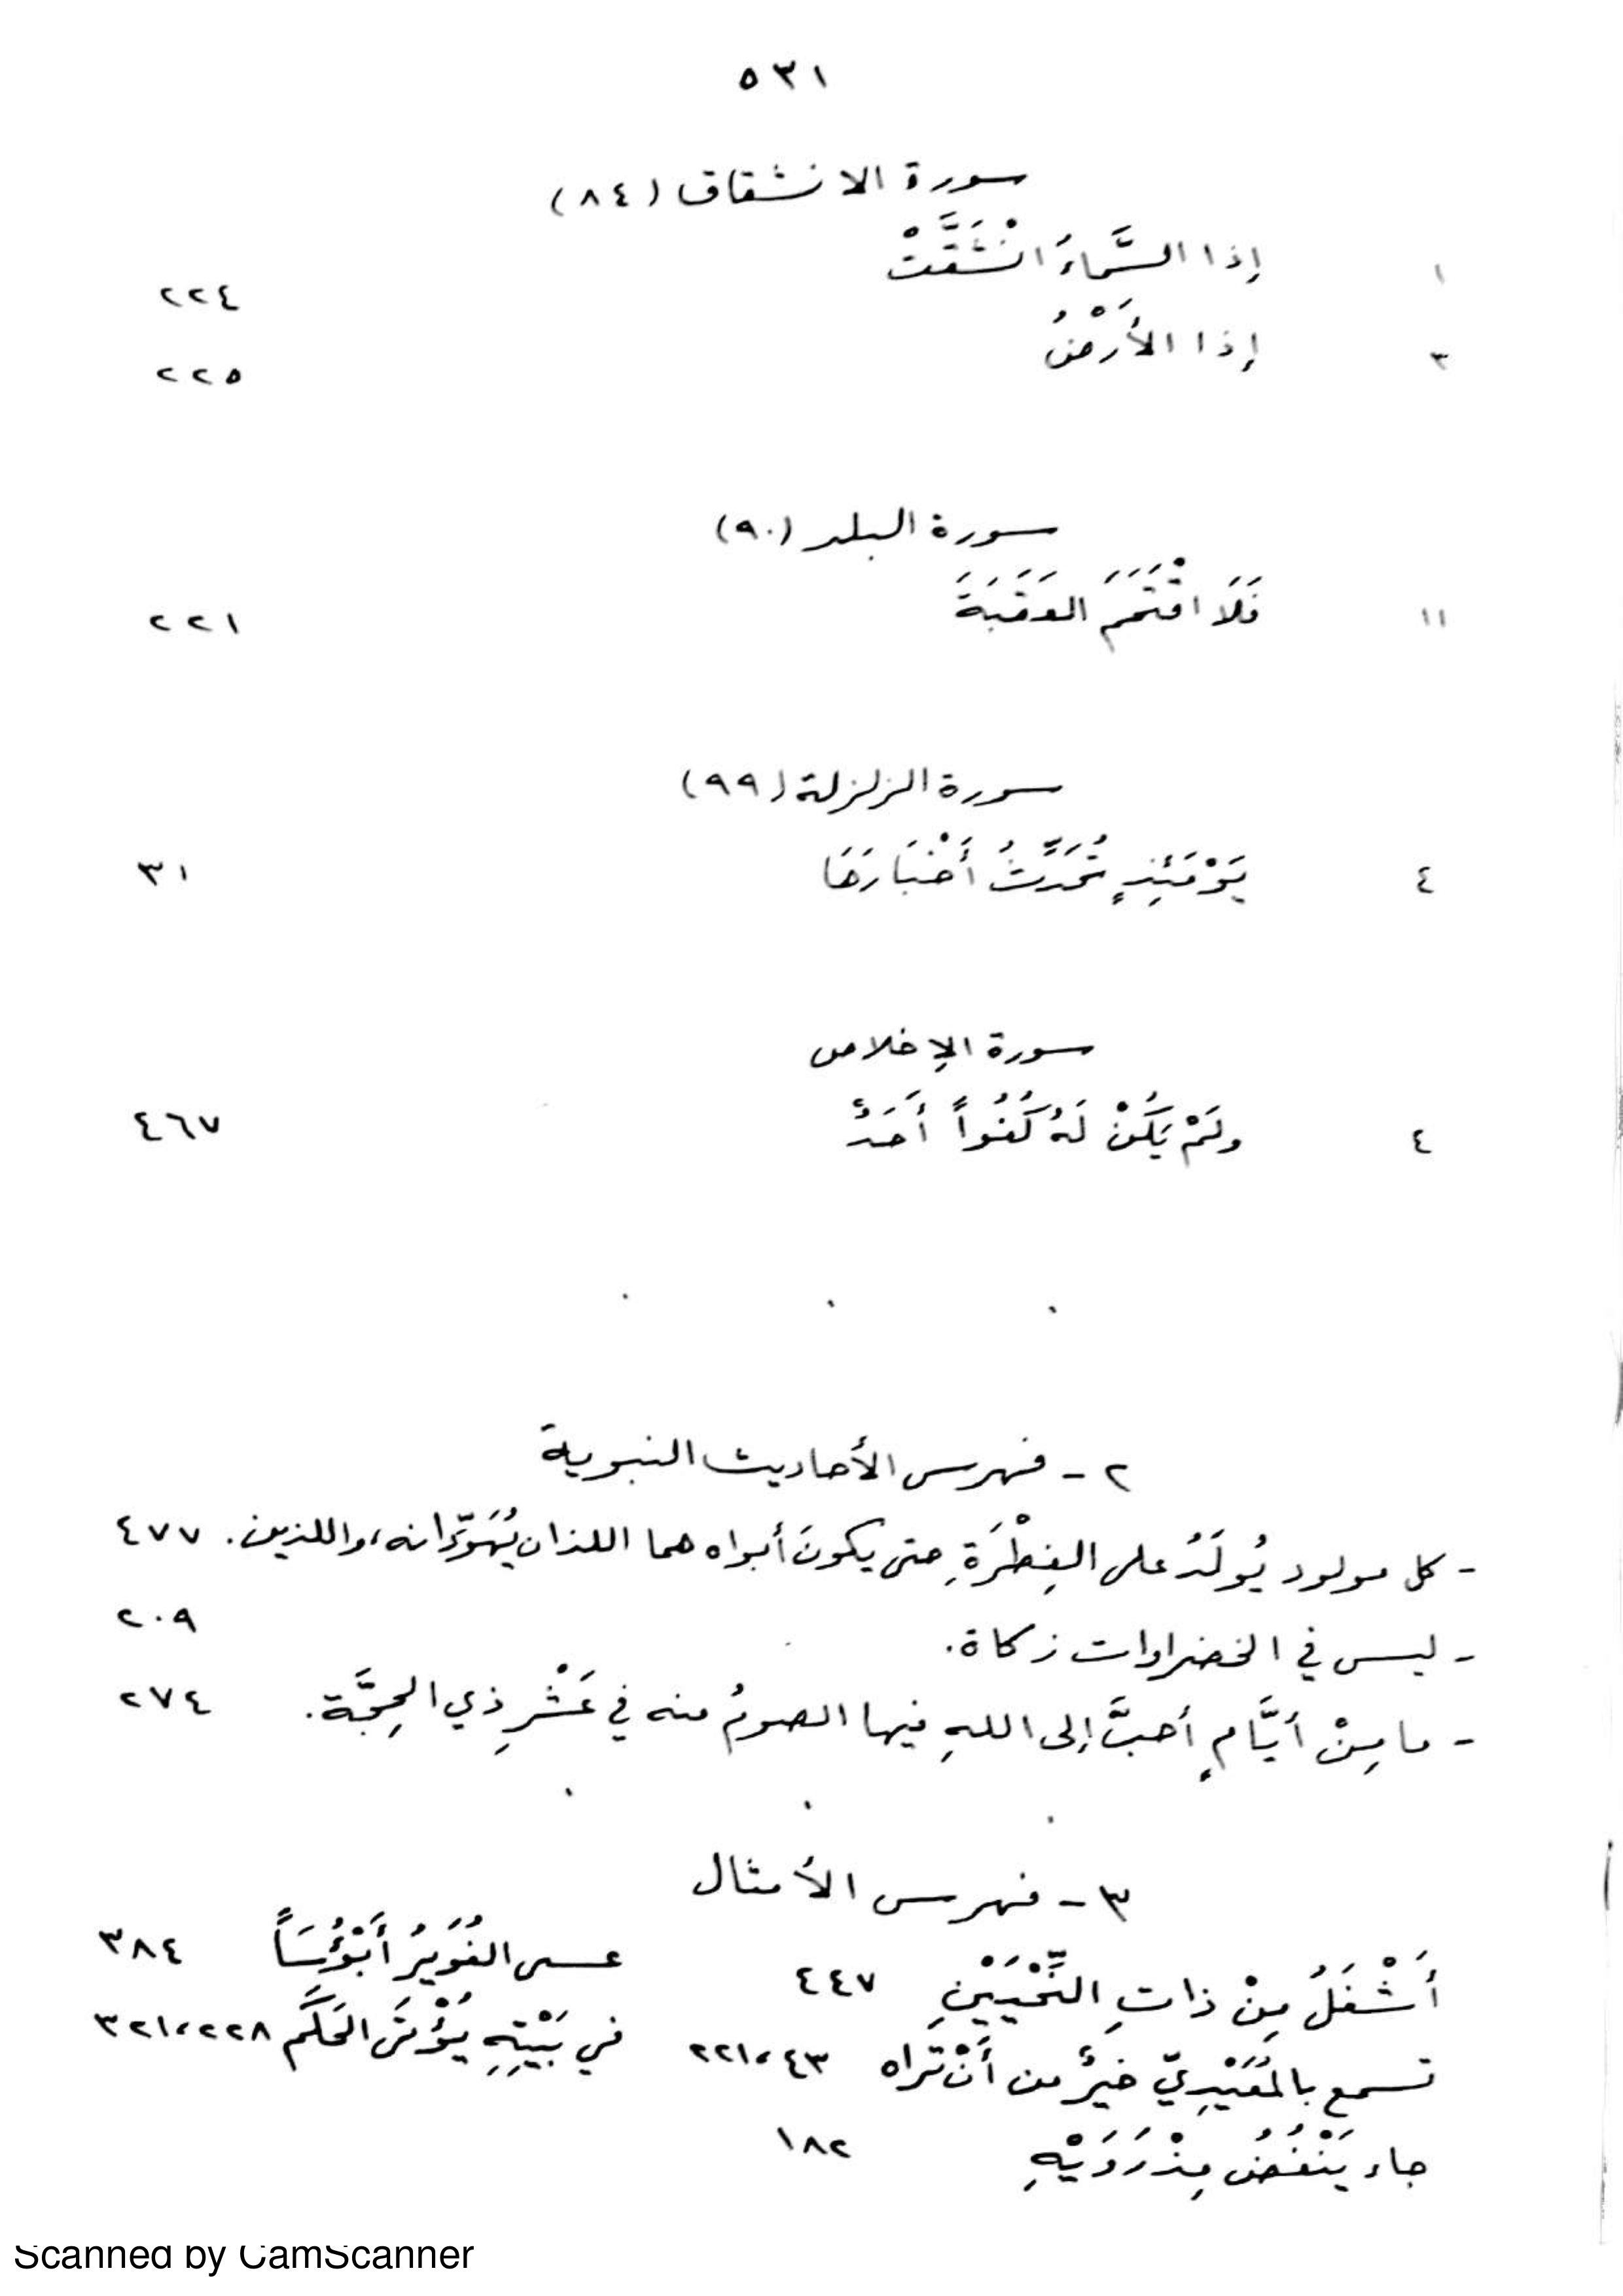 ٥٣١
سورة الانشقاق (٨٤)
١ إذا السَّماءُ انْشَقَّتْ ٢٢٤
٣ إذا الأَرْضُ ٢٢٥
سورة البلد (٩٠)
١١ فَلَا اقْتَحَمَ العَقَبَةَ ٢٢١
سورة الزلزلة (٩٩)
٤ يَوْمَئِذٍ تُحَدِّثُ أَخْبَارَهَا ٣١
سورة الإخلاص
٤ ولَمْ يَكُنْ لَهُ كُفُواً أَحَدٌ ٤٦٧
٢ - فهرس الأحاديث النبوية
- كل مولود يُولَدُ على الفِطْرَةِ حتى يكونَ أبواه هما اللذان يُهَوِّدانه، واللذين. ٤٧٧
- ليس في الخضراوات زكاة. ٢٠٩
- ما مِنْ أيَّامٍ أحبَّ إلى اللهِ فيها الصومُ منه في عَشْرِ ذي الحِجَّة. ٢٧٤
٣ - فهرس الأمثال
أَشْغَلُ مِنْ ذاتِ النِّحْيَيْنِ ٤٤٧
تسمع بالمُعَيْدِيّ خيرٌ من أَنْ تراه ٤٣، ٢٢١
جاء يَنْفُضُ مِذْرَوَيْهِ ١٨٢
عسى الغُوَيرُ أَبْؤُسَاً ٣٨٤
في بَيْتِهِ يُؤْتَى الحَكَم ٢٢٨، ٣٢١
Scanned by CamScanner